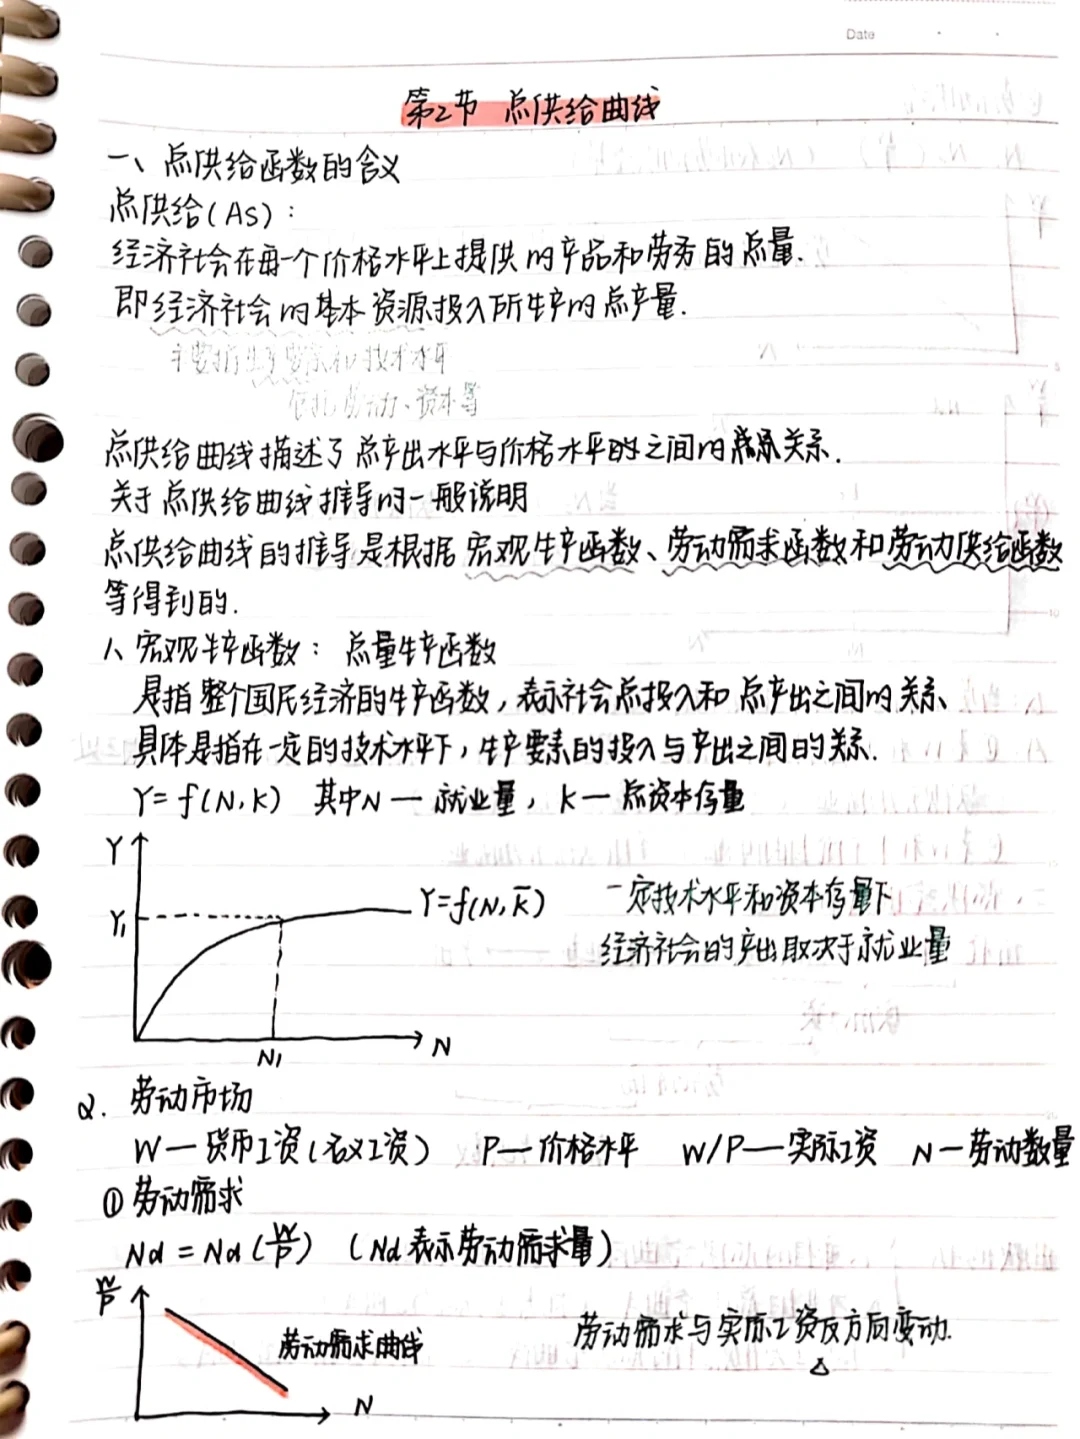 Date
第2节 总供给曲线
一、总供给函数的含义
总供给(AS):
经济社会在每一个价格水平上提供的产品和劳务的总量.
即经济社会的基本资源投入所生产的总产量.
主要指生产要素和技术水平
包括劳动、资本等
总供给曲线描述了总产出水平与价格水平的之间的关系.
关于总供给曲线推导的一般说明
总供给曲线的推导是根据宏观生产函数、劳动需求函数和劳动供给函数
等得到的.
1、宏观生产函数: 总量生产函数
是指整个国民经济的生产函数,表示社会总投入和总产出之间的关系、
具体是指在一定的技术水平下,生产要素的投入与产出之间的关系.
Y=f(N,K) 其中N—就业量, K—总资本存量
Y
Y1
Y=f(N,K̄)
一定技术水平和资本存量下
经济社会的产出取决于就业量
N1
N
2. 劳动市场
W—货币工资(名义工资) P—价格水平 W/P—实际工资 N—劳动数量
① 劳动需求
Nd = Nd(W/P) (Nd表示劳动需求量)
W/P
劳动需求曲线
劳动需求与实际工资反方向变动.
N